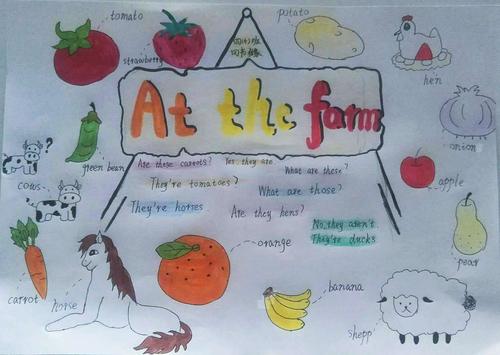 tomato
strawberry
potato
hen
At the farm
onion
green bean
Are these carrots? Yes, they are.
What are these?
They're tomatoes?
What are those?
They're horses
Are they hens?
No, they aren't.
They're ducks
?
cows
apple
pear
carrot
horse
orange
banana
shepp